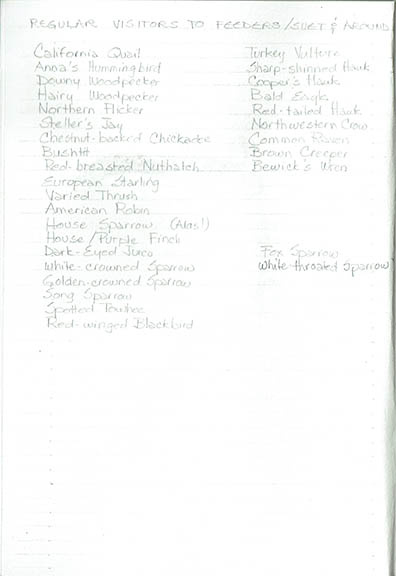 REGULAR VISITORS TO FEEDERS/SUET & AROUND
California Quail
Anna's Hummingbird
Downy Woodpecker
Hairy Woodpecker
Northern Flicker
Steller's Jay
Chestnut-backed Chickadee
Bushtit
Red-breasted Nuthatch
European Starling
Varied Thrush
American Robin
House Sparrow (Alas!)
House/Purple Finch
Dark-Eyed Junco
White-crowned Sparrow
Golden-crowned Sparrow
Song Sparrow
Spotted Towhee
Red-winged Blackbird
Turkey Vulture
Sharp-shinned Hawk
Cooper's Hawk
Bald Eagle
Red-tailed Hawk
Northwestern Crow
Common Raven
Brown Creeper
Bewick's Wren
Fox Sparrow
White-throated Sparrow